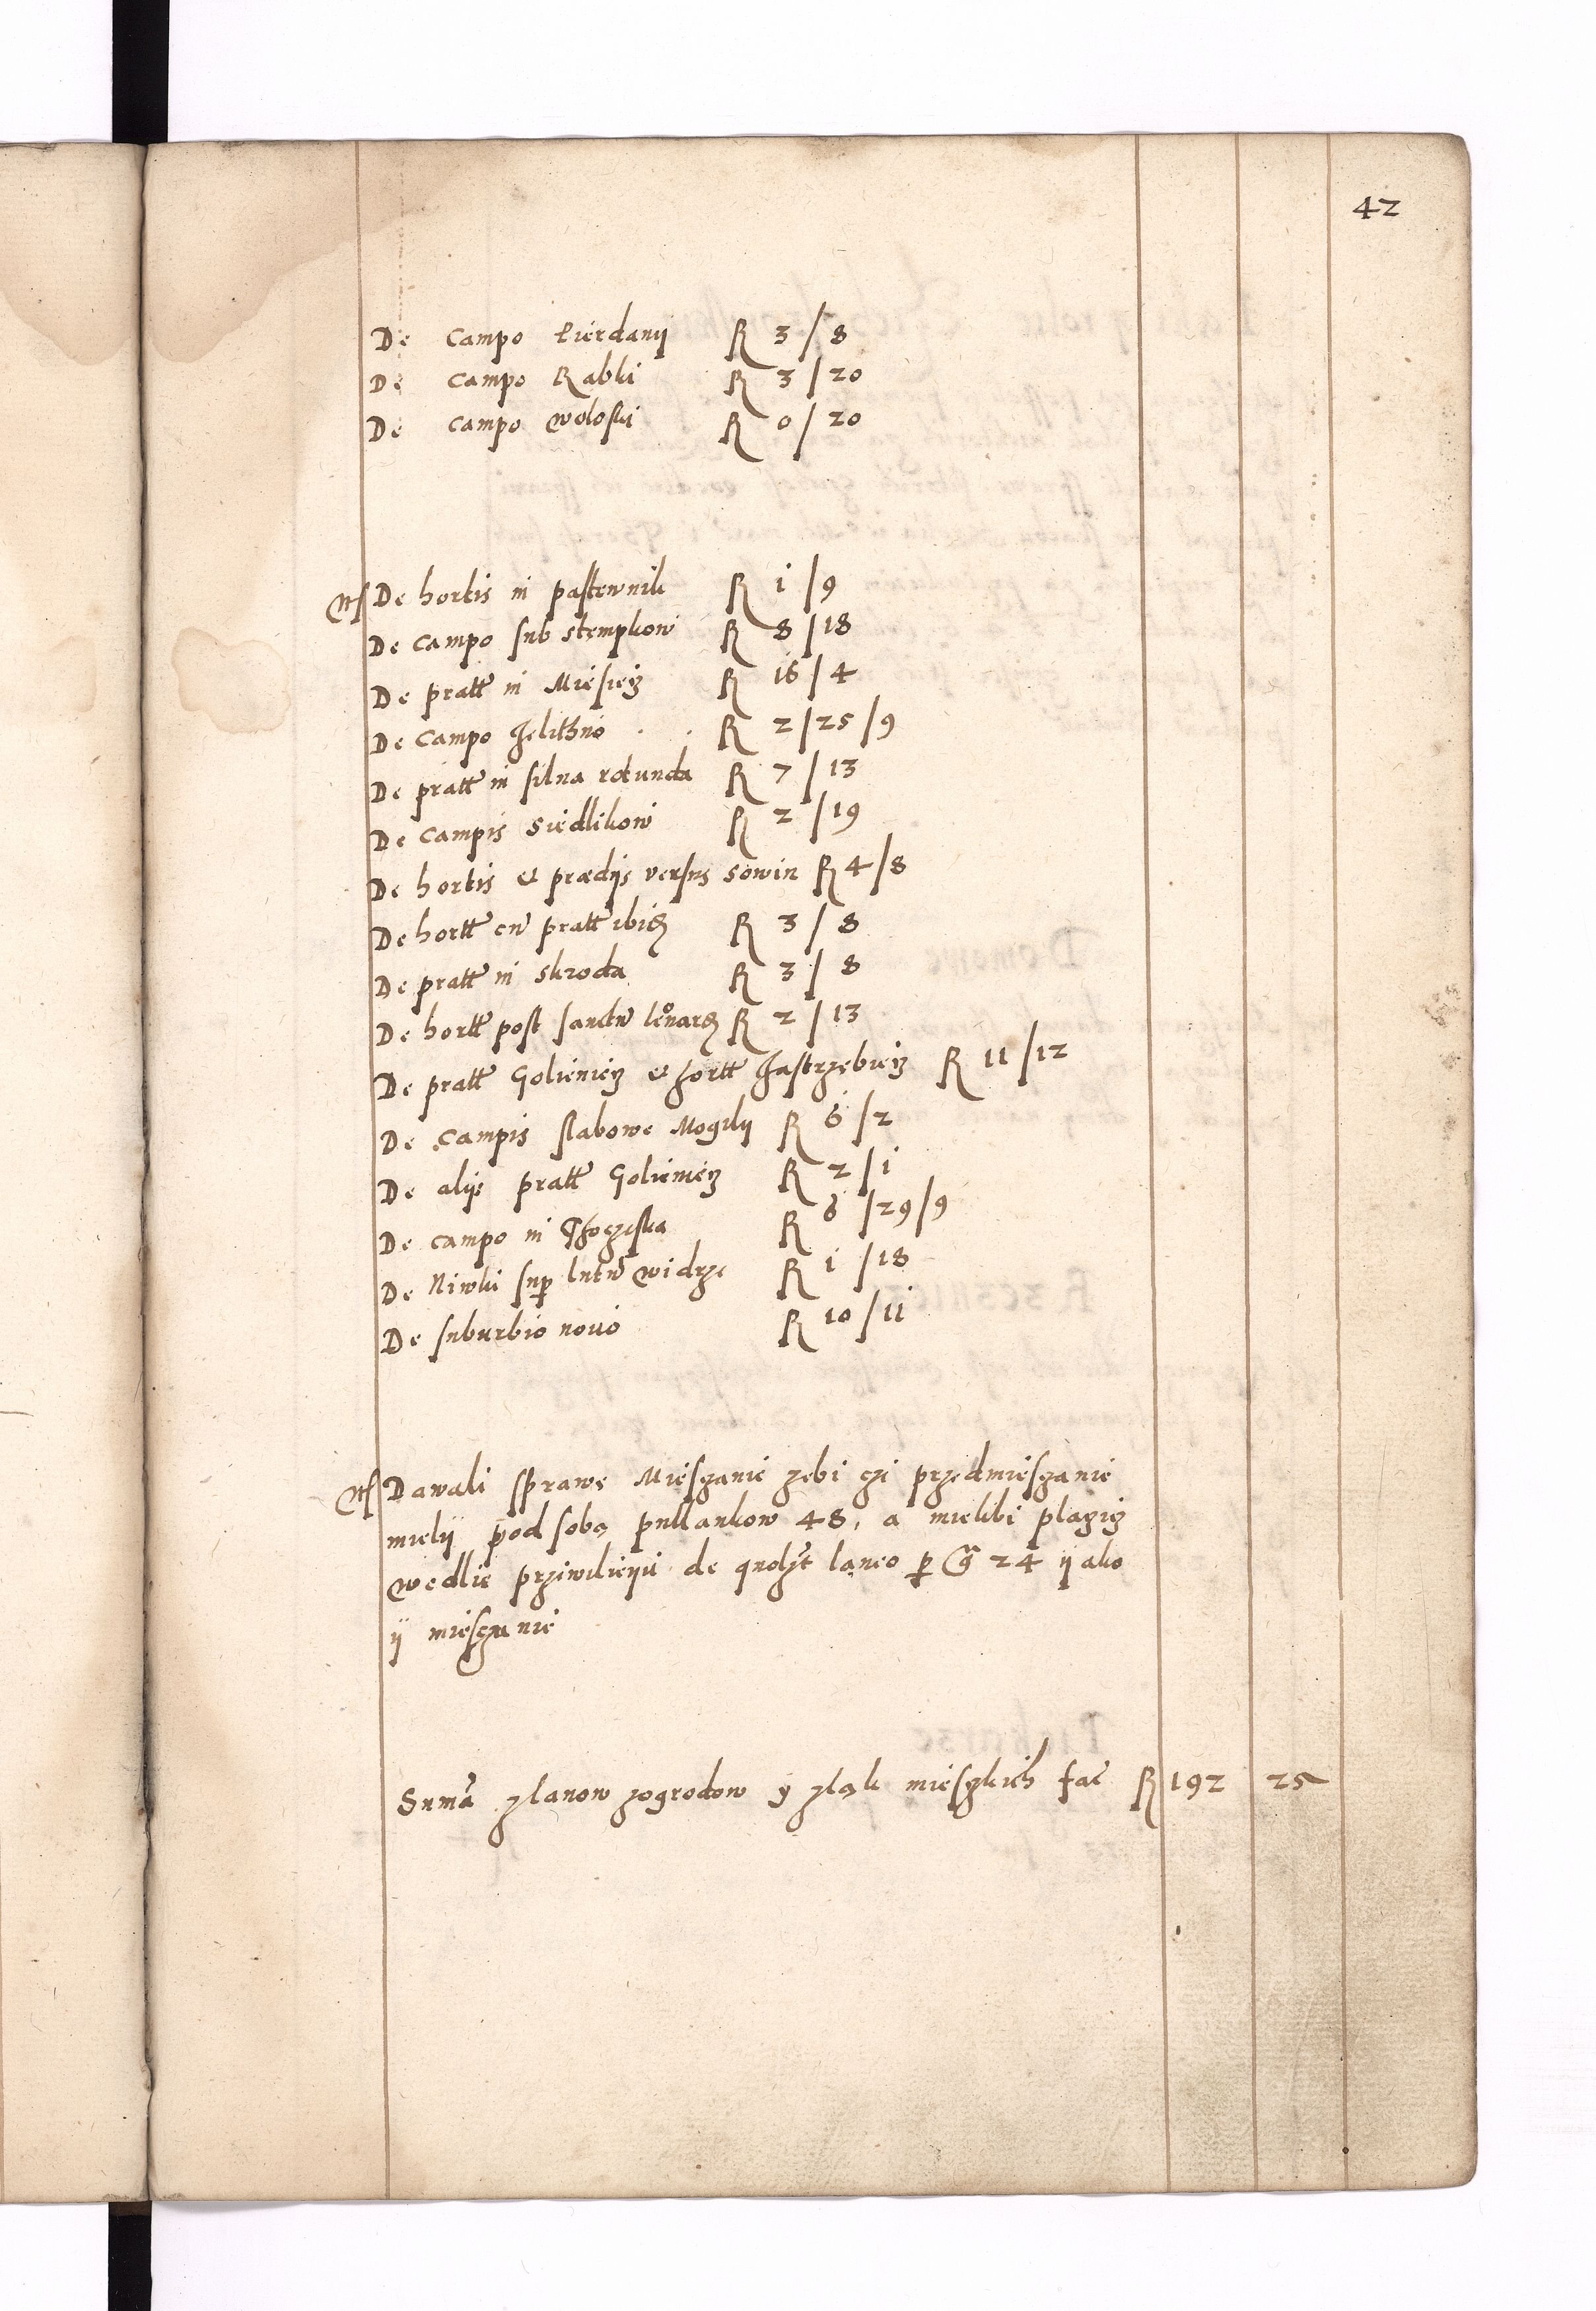 42
De campo Pierdanij R 3/8
De campo Rabki R 3/20
De campo woloski R 0/20
De hortis in pastewnik R 1/9
De campo sub stempkow R 8/18
De pratt in Miesiejz R 16/4
De campo Jelithno . . R 2/25/9
De pratt in silua rotunda R 7/13
De campis Siedlikow R 2/19
De hortis et prædijs versus sowin R 4/8
De hortt cu pratt ibid R 3/8
De pratt in skroda R 3/8
De hortt post sanctu leonard R 2/13
De pratt Golieniez et hortt Jastrzebiez R 11/12
De campis slabowe Mogily R 6/2
De alijs pratt Golieniez R 2/1
De campo in R 6/29/9
De Niwki sup lutu widrze R 1/18
De suburbio nouo R 10/11
Dawali sprawę Miesczanie zebi czi przedmiesczanie
mielij pod sobą pullankow 48, a mielibi placzicz
wedlie przwilieyu de quolzt laneo p G 24 ij ako
ij miesczanie
Suma zlanow zogrodow y zląk mieszkich fac R 192 25